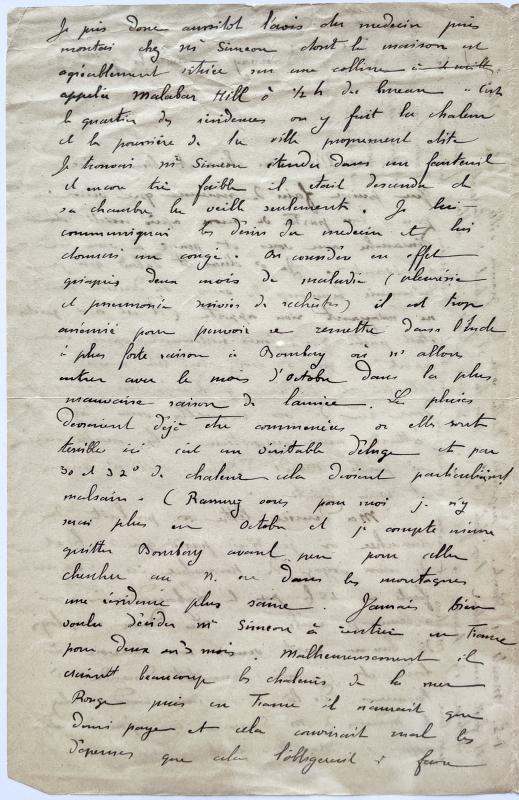 Je pris donc aussitôt l'avis du medecin puis
montai chez Mr Simeon dont la maison est
agréablement située sur une colline
appelée Malabar Hill à ½ h du bureau. C'est
le quartier des résidences on y fuit la chaleur
et la poussière de la ville proprement dite
Je trouvai Mr Simeon étendu dans un fauteuil
et encore très faible il était descendu de
sa chambre la veille seulement. Je lui
communiquai les désirs du medecin et lui
donnai un congé. On considère en effet
qu'après deux mois de maladie (pleurésie
et pneumonie suivies de rechutes) il est trop
anémié pour pouvoir se remettre dans l'Inde
à plus forte raison à Bombay où ns allons
entrer avec le mois d'Octobre dans la plus
mauvaise saison de l'année. Les pluies
devraient déjà être commencées or elles sont
terribles ici c'est un véritable déluge et par
30 et 32° de chaleur cela devient particulièrement
malsain. (Rassurez vous pour moi je n'y
serai plus en Octobre et je compte même
quitter Bombay avant peu pour aller
chercher au N. ou dans les montagnes
une résidence plus saine. J'aurais bien
voulu décider Mr Simeon à rentrer en France
pour deux ou 3 mois. Malheureusement il
craint beaucoup les chaleurs de la mer
Rouge puis en France il n'aurait que
demi paye et cela couvrirait mal les
dépenses que cela l'obligerait à faire